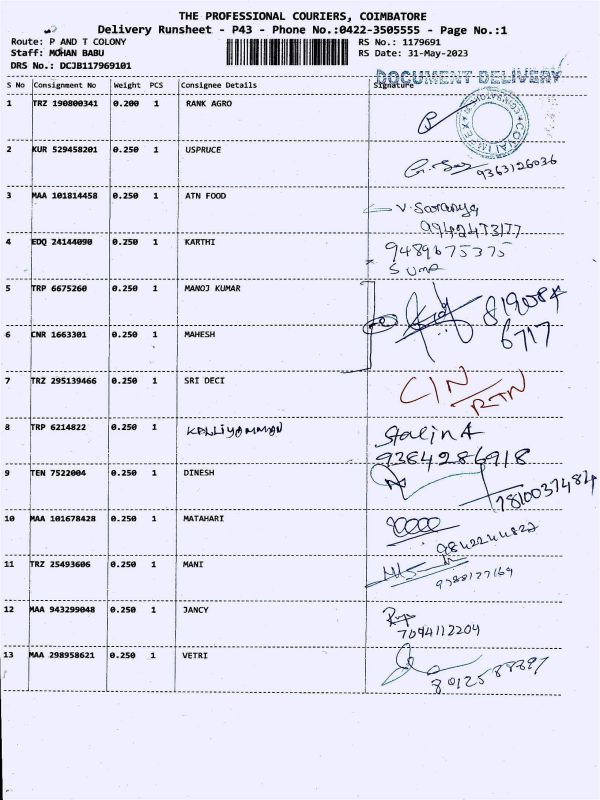 THE PROFESSIONAL COURIERS, COIMBATORE
Delivery Runsheet - P43 - Phone No.:0422-3505555 - Page No.:1
Route: P AND T COLONY RS No.: 1179691
Staff: MOHAN BABU RS Date: 31-May-2023
DRS No.: DCJB117969101
DOCUMENT DELIVERY
S No Consignment No Weight PCS Consignee Details Signature
1 TRZ 190800341 0.200 1 RANK AGRO
2 KUR 529458201 0.250 1 USPRUCE 9363126036
3 MAA 101814458 0.250 1 ATN FOOD V. Saranya
9942473177
4 EDQ 24144090 0.250 1 KARTHI 9489675375
Suma
5 TRP 6675260 0.250 1 MANOJ KUMAR 819084
6717
6 CNR 1663301 0.250 1 MAHESH
7 TRZ 295139466 0.250 1 SRI DECI CIN
RTN
8 TRP 6214822 0.250 1 KALLIYAMMAN Stalin A
9384286918
9 TEN 7522004 0.250 1 DINESH 7810037484
10 MAA 101678428 0.250 1 MATAHARI 9842244822
11 TRZ 25493606 0.250 1 MANI
12 MAA 943299048 0.250 1 JANCY
7094112204
13 MAA 298958621 0.250 1 VETRI